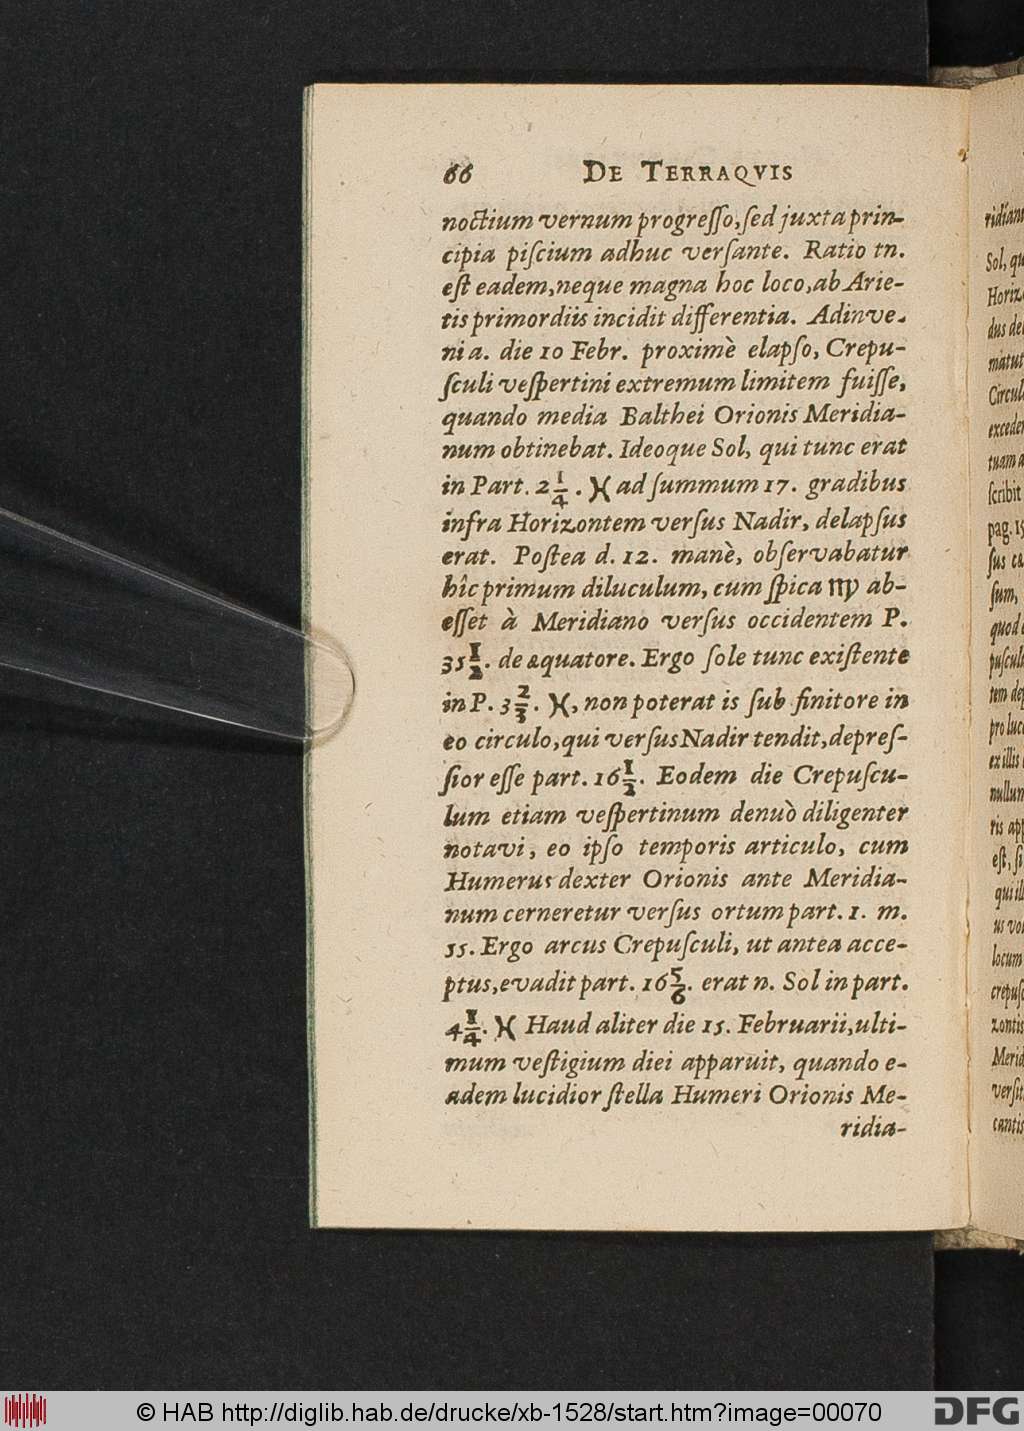 66 DE TERRAQVIS
noctium vernum progresso, sed juxta prin-
cipia piscium adhuc versante. Ratio tn.
est eadem, neque magna hoc loco, ab Arie-
tis primordiis incidit differentia. Adinve-
ni a. die 10 Febr. proximè elapso, Crepu-
sculi vespertini extremum limitem fuisse,
quando media Balthei Orionis Meridia-
num obtinebat. Ideoque Sol, qui tunc erat
in Part. 2 1/4 . ♓ ad summum 17. gradibus
infra Horizontem versus Nadir, delapsus
erat. Postea d. 12. manè, observabatur
hîc primum diluculum, cum spica ♍ ab-
esset à Meridiano versus occidentem P.
35 1/2 . de æquatore. Ergo sole tunc existente
in P. 3 2/3 . ♓, non poterat is sub finitore in
eo circulo, qui versus Nadir tendit, depres-
sior esse part. 16 1/2 . Eodem die Crepuscu-
lum etiam vespertinum denuò diligenter
notavi, eo ipso temporis articulo, cum
Humerus dexter Orionis ante Meridia-
num cerneretur versus ortum part. 1. m.
55. Ergo arcus Crepusculi, ut antea acce-
ptus, evadit part. 16 5/6 . erat n. Sol in part.
4 1/4 . ♓ Haud aliter die 15. Februarii, ulti-
mum vestigium diei apparuit, quando e-
adem lucidior stella Humeri Orionis Me-
ridia-
Sol, qu
Horiz
dus de
matut
Circul
exceder
tuam a
scribit
pag. 15
sum,
quod
pro luc
ex illis
nullum
ris app
est, si
qui ill
us vol
locum
crepusc
zontis
Merid
versit
cantis
© HAB http://diglib.hab.de/drucke/xb-1528/start.htm?image=00070
DFG